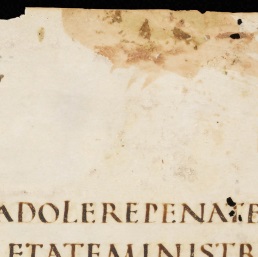 ADOLEREPENATE
ETATEMINISTR